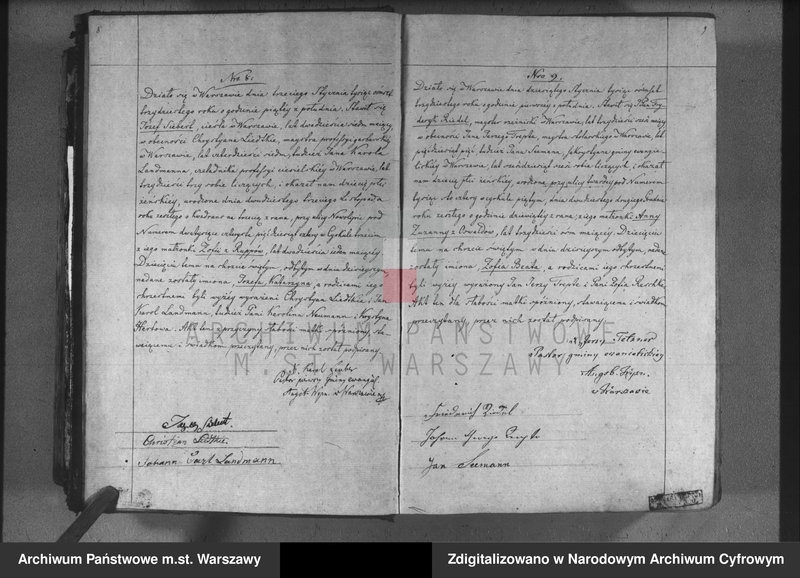 8
Nro 8.
Działo się w Warszawie dnia trzeciego Stycznia tysiąc osmset
trzydziestego roku o godzinie piątéy z południa. Stawił się
Józef Siebert, cieśla w Warszawie, lat dwadzieścia siedm maiący
w obecności Chrystyana Liedtkie, magistra professyi
w Warszawie, lat czterdzieści siedm, tudzież Jana Karola
Landmanna, czeladnika professyi ciesielskiey w Warszawie, lat
trzydzieści trzy roku liczących, i okazał nam dziecię płci
żeńskiey, urodzone dnia dwudziestego trzeciego Listopada
roku zeszłego o kwadrans na trzecią z rana, przy ulicy Nowolipie pod
Numerem dwa tysiące czterysta pięćdziesiąt cztery w Cyrkule trzecim
z iego małżonki Zofii z Ruppów, lat dwadzieścia ieden maiącéy
Dziecięciu temu na chrzcie świętym, odbytym w dniu dzisieyszym
nadane zostały imiona Józefa Katarzyna, a rodzicami iego
chrzestnemi byli wyżey wyrażeni Chrystyan Liedtkie, i Jan
Karol Landmann, tudzież Pani Karolina Neumann i Krystyna
Herbowa. Akt ten z przyczyny słabości matki spóźniony, sta-
wiącemu i świadkom przeczytany, przez nich został podpisany
X. Karol
Pastor pierwszy gminy ewangel.
Augsb: Wyzn. w Warszawie
Siebert.
Christian Liedtkie.
Johann Carl Landmann
9
Nro 9.
Działo się w Warszawie dnia dziewiątego Stycznia tysiąc osmset
trzydziestego roku o godzinie pierwszéy z południa. Stawił się Pan Fry-
deryk Riedel, maister rzeźnicki w Warszawie, lat trzydzieści osm maiący
w obecności Jana Jerzego Trepte, maystra stolarskiego w Warszawie, lat
pięćdziesiąt pięć tudzież Jana Seemana, zakrystyana gminy ewanie-
lickiéy w Warszawie, lat sześćdziesiąt osm roku liczących, i okazał
nam dziecię płci żeńskiéy, urodzone przy ulicy twardey pod Numerem
tysiąc sto cztery w cyrkule piątym, dnia dwudziestego drugiego Grudnia
roku zeszłego o godzinie dziewiątéy z rana, z iego małżonki Anny
Zuzanny z Oswaldów, lat trzydzieści osm maiącéy. Dziecięciu
temu na chrzcie świętym w dniu dzisieyszym odbytym, nadane
zostały imiona Zofia Beata, a rodzicami iego chrzestnemi
byli wyżey wyrażony Pan Jerzy Trepte i Pani Zofia
Akt ten dla słabości matki spóźniony, stawiącemu i świadkom
przeczytany, przez nich został podpisany
X. Jerzy Tetzner
Pastor gminy ewanielickiéy
Augsb. Wyzn.
w Warszawie
Friedrich Riedel
Johann George Trepte
Jan Seemann
ARCHIWUM PAŃSTWOWE
M.ST. WARSZAWY
Archiwum Państwowe m.st. Warszawy
Zdigitalizowano w Narodowym Archiwum Cyfrowym